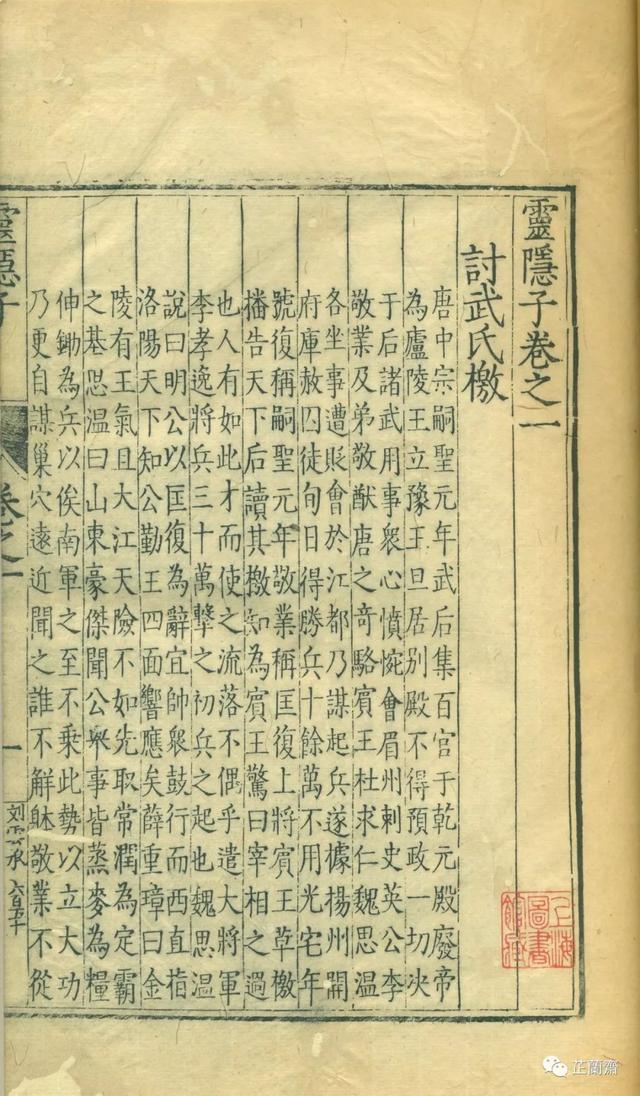 靈隱子卷之一
討武氏檄
唐中宗嗣聖元年武后集百官于乾元殿廢帝
為廬陵王立豫王旦居別殿不得預政一切决
于后諸武用事衆心憤惋會眉州刺史英公李
敬業及弟敬猷唐之奇駱賓王杜求仁魏思溫
各坐事遭貶會於江都乃謀起兵遂據楊州開
府庫赦囚徒旬日得勝兵十餘萬不用光宅年
號復稱嗣聖元年敬業稱匡復上將賓王草檄
播告天下后讀其檄知為賓王驚曰宰相之過
也人有如此才而使之流落不偶乎遣大將軍
李孝逸將兵三十萬擊之初兵之起也魏思溫
說曰明公以匡復為辭宜帥衆鼓行而西直指
洛陽天下知公勤王四面響應矣薛重璋曰金
陵有王氣且大江天險不如先取常潤為定霸
之基思溫曰山東豪傑聞公舉事皆蒸麥為糧
伸鋤為兵以俟南軍之至不乘此勢以立大功
乃更自謀巢穴遠近聞之誰不解躰敬業不從
靈隱子
卷之一
一
刘雲承
六百五十
上海圖書館藏
芷蘭齋